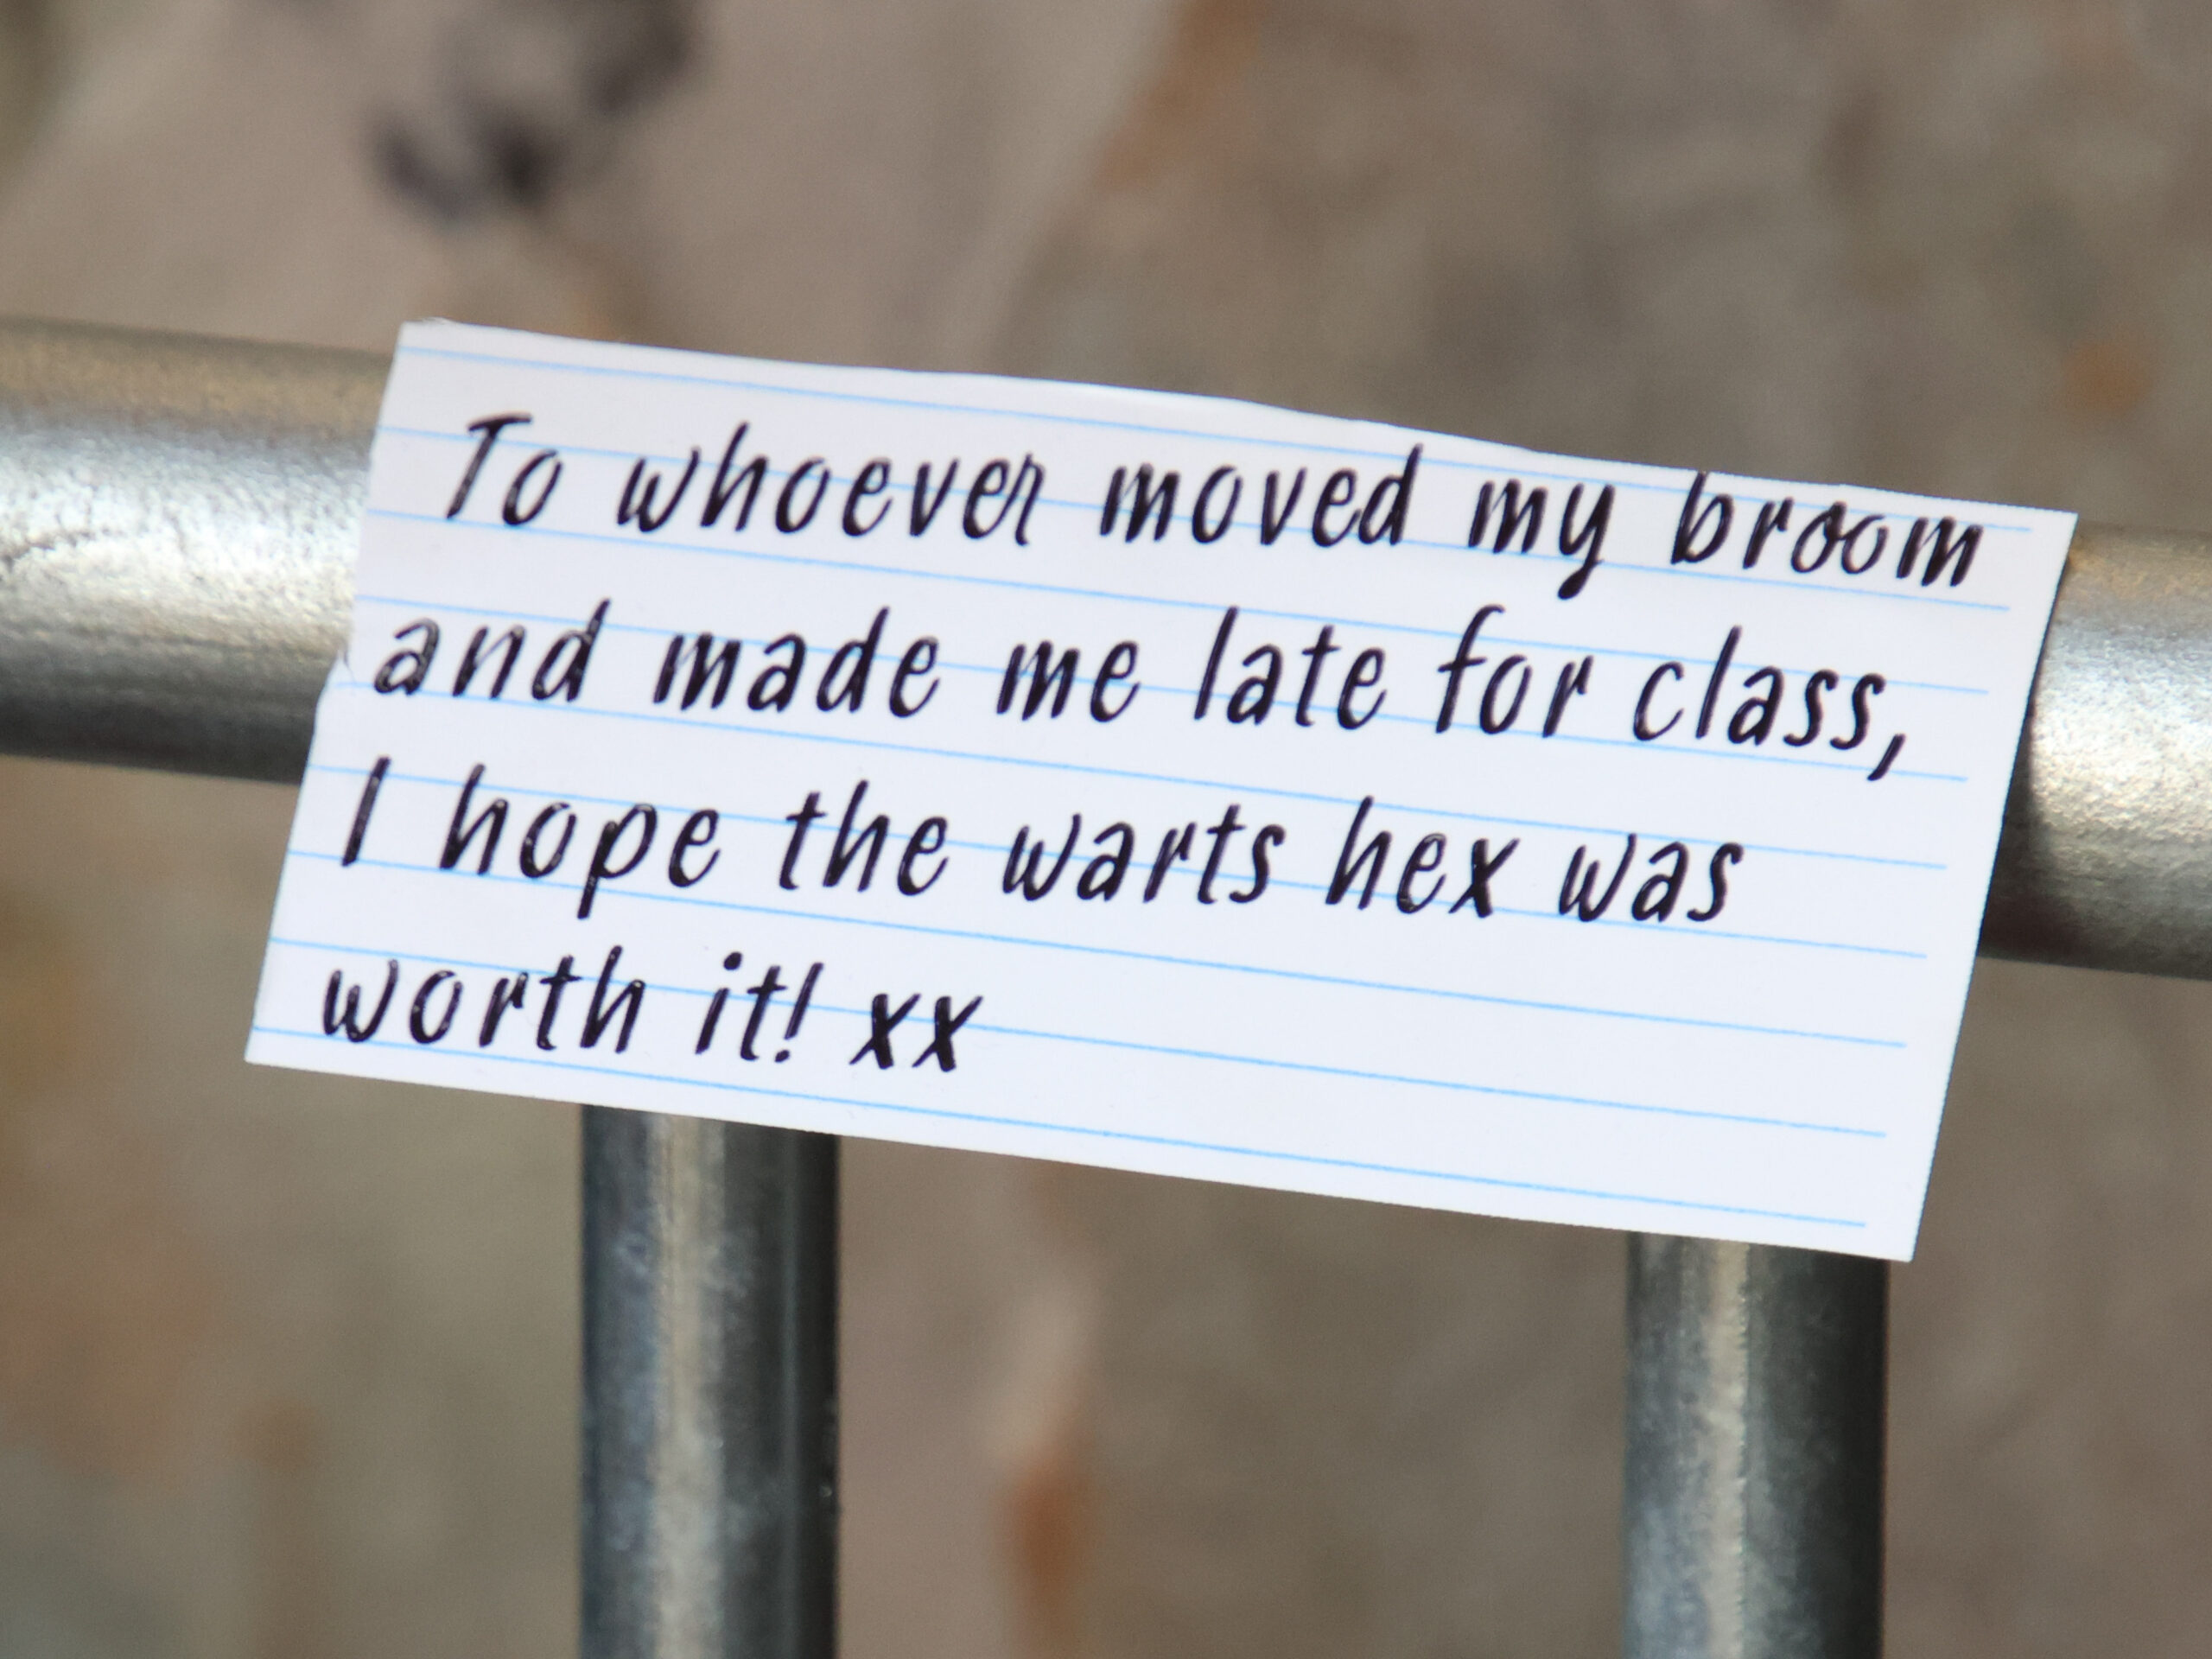 To whoever moved my broom
and made me late for class,
I hope the warts hex was
worth it! xx